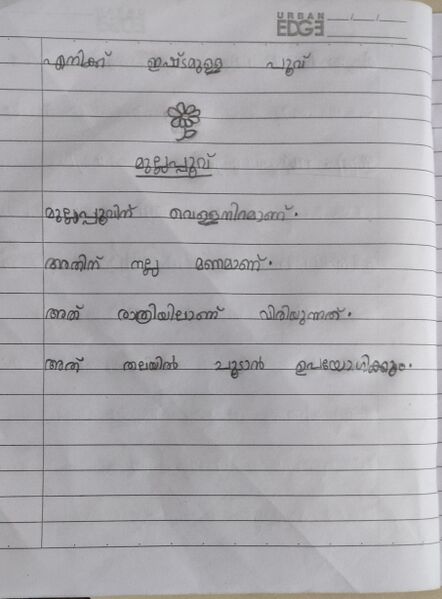 URBAN
EDGE
എനിക്ക് ഇഷ്ടമുള്ള പൂവ്
മുല്ലപ്പൂവ്
മുല്ലപ്പൂവിന് വെള്ളനിറമാണ്.
അതിന് നല്ല മണമാണ്.
അത് രാത്രിയിലാണ് വിരിയുന്നത്.
അത് തലയിൽ ചൂടാൻ ഉപയോഗിക്കും.